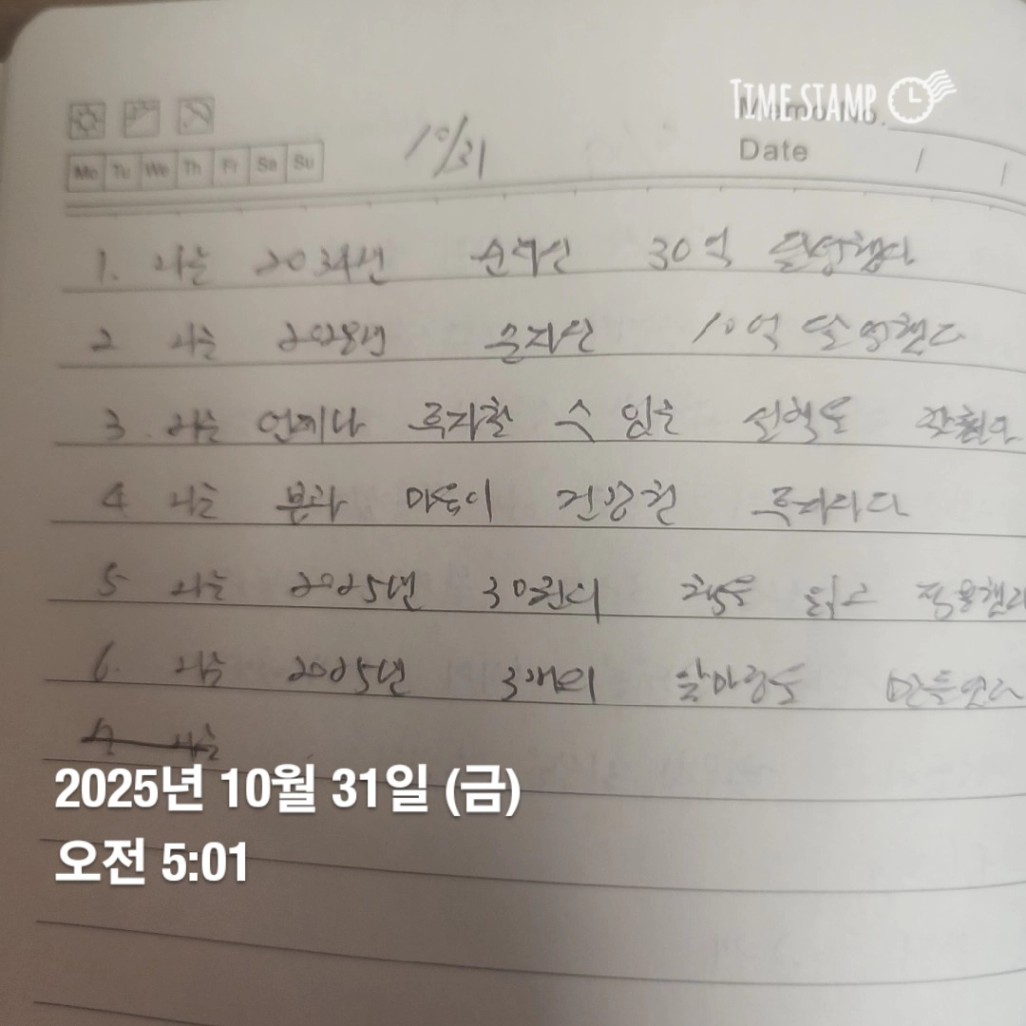 TIME STAMP
Memo No.
Date / /
Mo Tu We Th Fr Sa Su
10/31
1. 나는 2034년 순자산 30억 달성했다
2 나는 2028년 순자산 10억 달성했다
3. 나는 언제나 투자할 수 있는 선택을
4 나는 몸과 마음이 건강한 투자자다
5 나는 2025년 30권의 책을 읽고 적용했다
6. 나는 2025년 3개의 만들었다
나는
2025년 10월 31일 (금)
오전 5:01